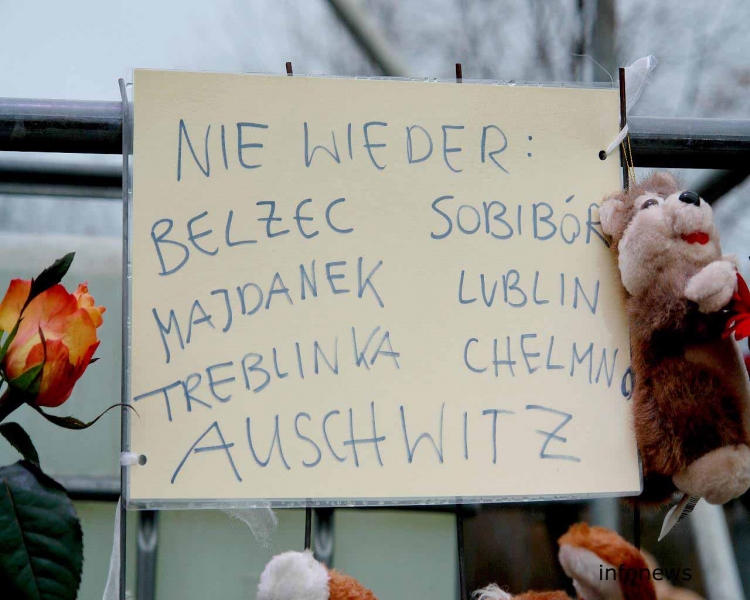 NIE WIEDER:
BELZEC SOBIBÓR
MAJDANEK LUBLIN
TREBLINKA CHELMNO
AUSCHWITZ
infonews